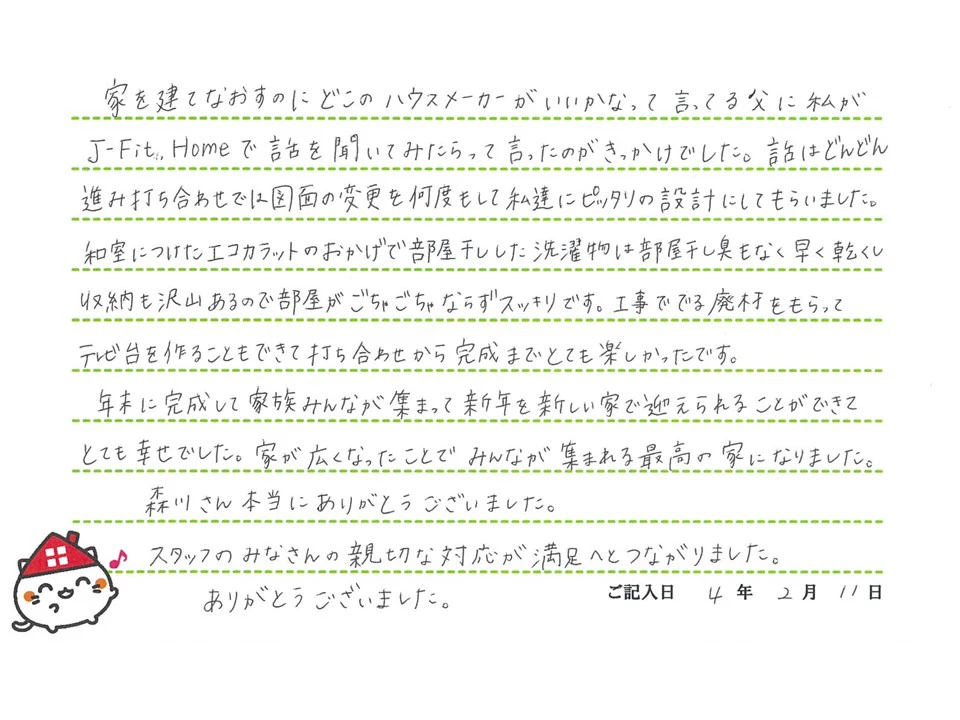 家を建てなおすのにどこのハウスメーカーがいいかなって言ってる父に私が
J-Fit.Homeで話を聞いてみたらって言ったのがきっかけでした。話はどんどん
進み打ち合わせでは図面の変更を何度もして私達にピッタリの設計にしてもらいました。
和室につけたエコカラットのおかげで部屋干しした洗濯物は部屋干し臭もなく早く乾くし
収納も沢山あるので部屋がごちゃごちゃならずスッキリです。工事ででる廃材をもらって
テレビ台を作ることもできて打ち合わせから完成までとても楽しかったです。
年末に完成して家族みんなが集まって新年を新しい家で迎えられることができて
とても幸せでした。家が広くなったことでみんなが集まれる最高の家になりました。
森川さん本当にありがとうございました。
スタッフのみなさんの親切な対応が満足へとつながりました。
ありがとうございました。
ご記入日 4年 2月 11日